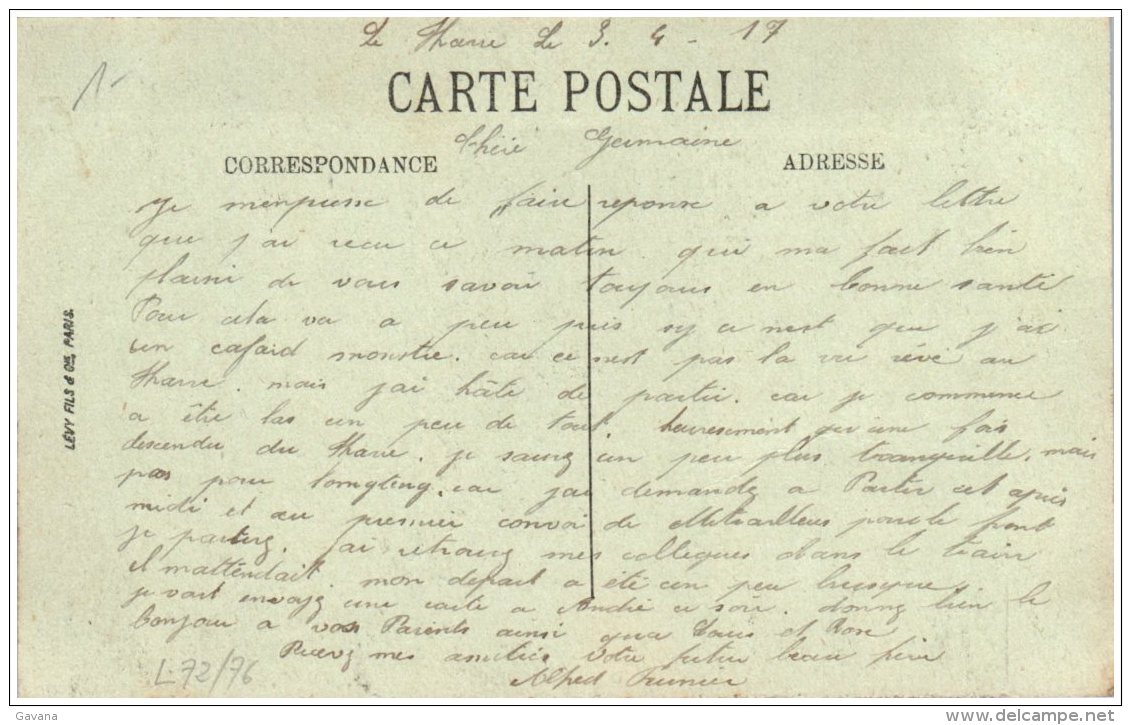 Le Havre Le 3. 4 - 17
1-
CARTE POSTALE
Chère Germaine
CORRESPONDANCE
ADRESSE
Je m'enpresse de faire reponse a votre lettre
que j'ai recu ce matin qui ma fait bien
plaisir de vous savoir toujours en bonne santé
Pour cela va a peu puis sy ce nest que j'ai
un cafard monstre. car ce nest pas la vie rêvé au
Havre. mais j'ai hâte de partir. car je commence
a être las un peu de tout. heuresement qu'une fois
descendu du Havre. je saurez un peu plus tranquille. mais
pas pour longteng. car j'ai demandez a Partir cet après
midi et au premier convoi de Mitrailleus pour le front
je partez. j'ai retrouvez mes collegues dans le train
il mattendait. mon depart a été un peu brusque,
je vait envoyez une carte a André ce soir. donnez bien le
bonjour a vos Parents ainsi qua Louis et Rose
Recevez mes amitiés votre futur beau frère
Alfred Prunier
LÉVY FILS & Cie, PARIS.
L-72/76
Gavana
www.delcampe.net